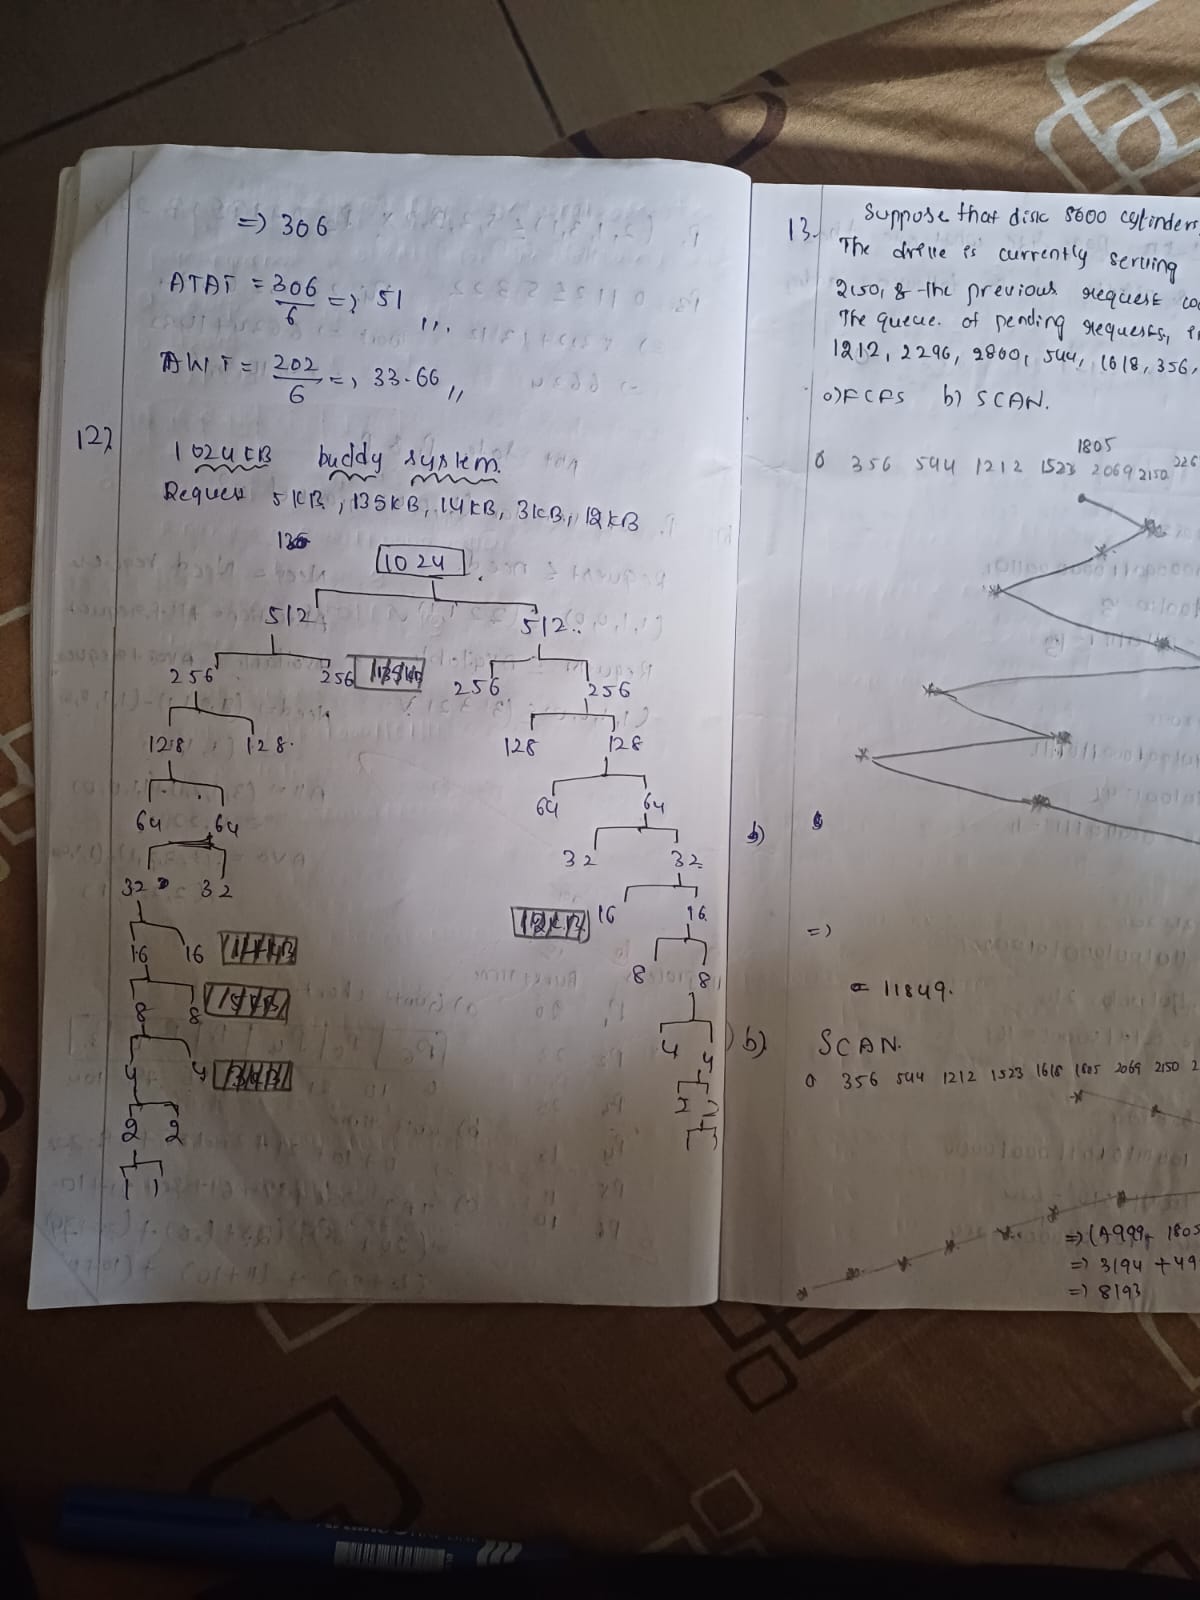 => 306
ATAT = 306/6 => 51
AWT = 202/6 => 33.66
12)
1024KB buddy system.
Request 5KB, 135KB, 14KB, 3KB, 12KB
1024
512 512
256 256 135KB 256 256
128 128 128 128
64 64 64 64
32 32 32 32
16 16 14KB 12KB 16 16
8 8 5KB 8 8
4 4 3KB 4 4
2 2 2 2
1 1
13. Suppose that disk 5000 cylinders,
The drive is currently serving
2150, & the previous request
The queue of pending requests,
1212, 2296, 2800, 544, 1618, 356,
a) FCFS b) SCAN.
1805
0 356 544 1212 1523 2069 2150 226
b)
=>
= 11849.
b) SCAN.
0 356 544 1212 1523 1618 1805 2069 2150 2
=> (4999+ 1805
=> 3194 + 49
=> 8193